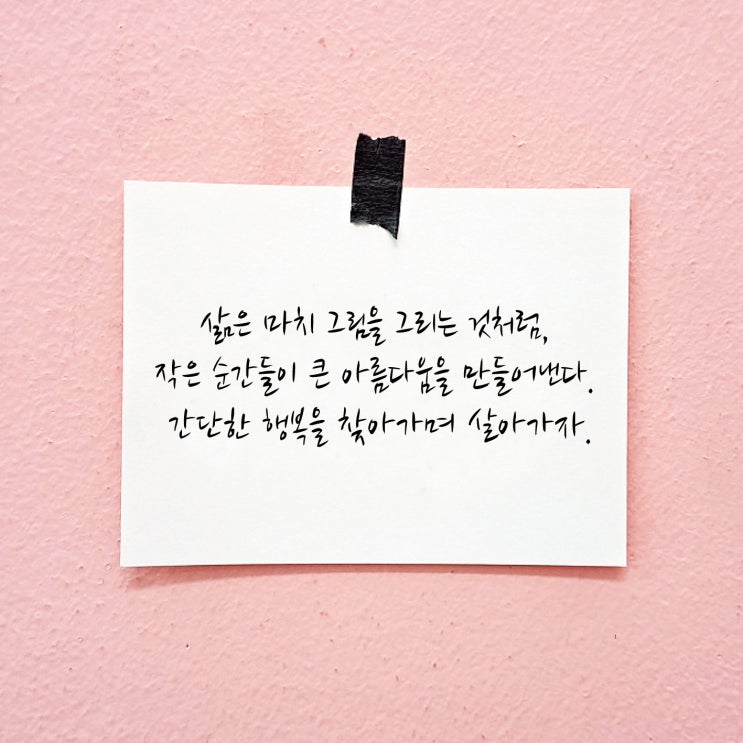 삶은 마치 그림을 그리는 것처럼,
작은 순간들이 큰 아름다움을 만들어낸다.
간단한 행복을 찾아가며 살아가자.